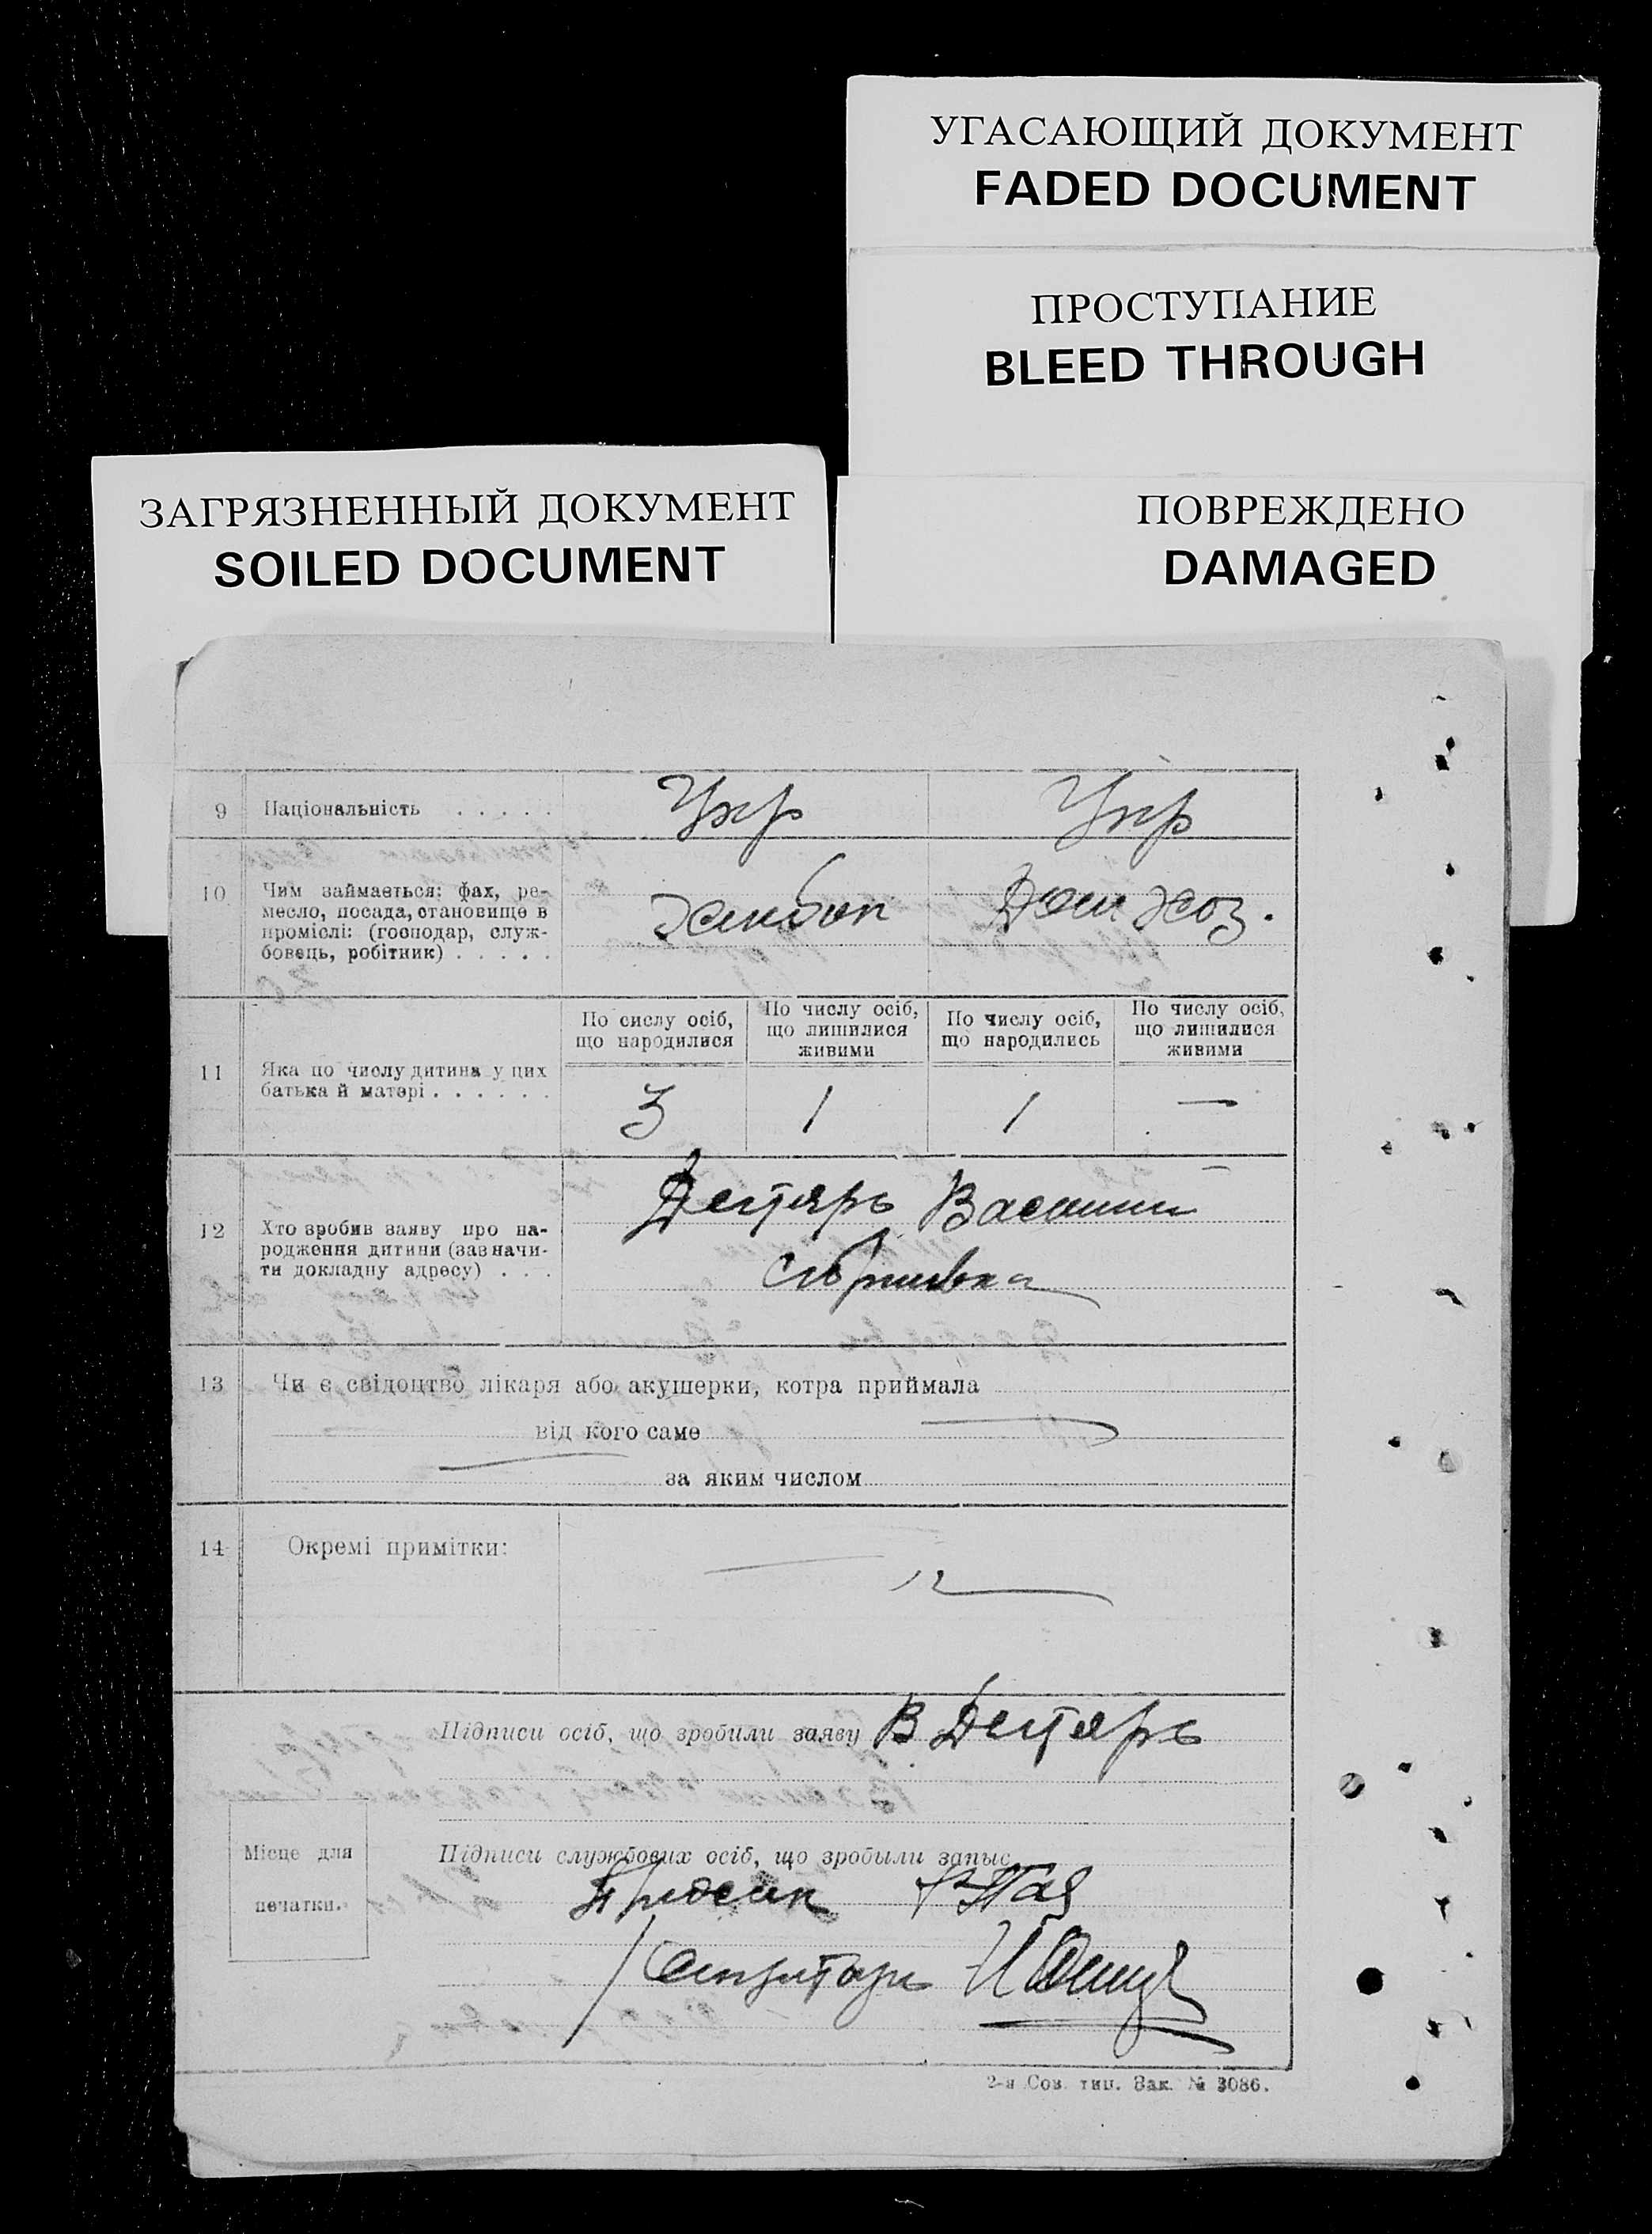 УГАСАЮЩИЙ ДОКУМЕНТ
FADED DOCUMENT
ПРОСТУПАНИЕ
BLEED THROUGH
ЗАГРЯЗНЕННЫЙ ДОКУМЕНТ
SOILED DOCUMENT
ПОВРЕЖДЕНО
DAMAGED
9 Національність . . . . . Укр Укр
10 Чим займається: фах, ре-
месло, посада, становище в
проміслі: (господар, служ-
бовець, робітник) . . . . .
Хлибоп Дом Хоз.
По сислу осіб, що народилися
По числу осіб, що лишилися живими
По числу осіб, що народились
По числу осіб, що лишилися живими
11 Яка по числу дитина у цих
батька й матері . . . . . .
3 1 1 —
12 Хто зробив заяву про на-
родження дитини (зазначи-
ти докладну адресу) . . .
Дегтярь Василий
13 Чи є свідоцтво лікаря або акушерки, котра приймала
від кого саме
за яким числом
14 Окремі примітки:
Підписи осіб, що зробили заяву В Дегтярь
Місце для
печатки.
Підписи службових осіб, що зробыли запыс
Секретарь
2-я Сов. тип. Зак. № 3086.